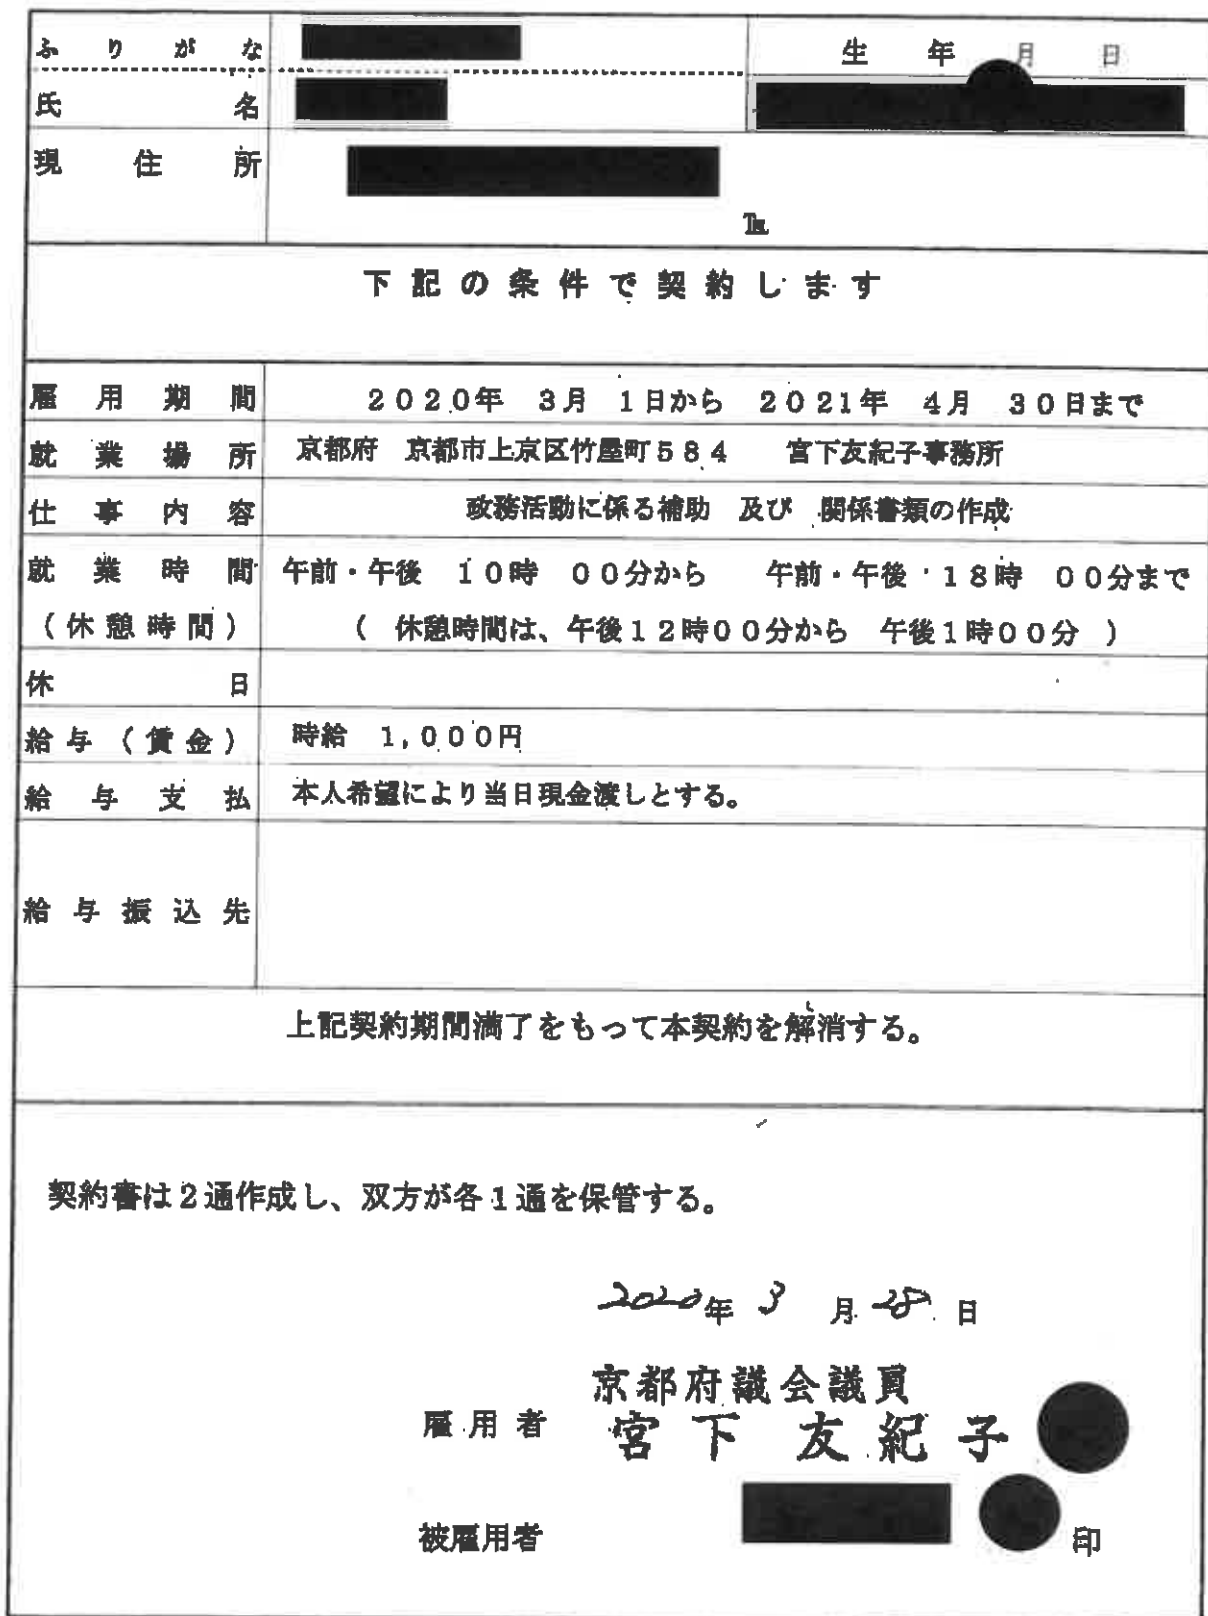 ふりがな 生年月日
氏名
現住所
℡
下記の条件で契約します
雇用期間 2020年 3月 1日から 2021年 4月 30日まで
就業場所 京都府 京都市上京区竹屋町584 宮下友紀子事務所
仕事内容 政務活動に係る補助 及び 関係書類の作成
就業時間 午前・午後 10時 00分から 午前・午後 18時 00分まで
(休憩時間) ( 休憩時間は、午後12時00分から 午後1時00分 )
休日
給与(賃金) 時給 1,000円
給与支払 本人希望により当日現金渡しとする。
給与振込先
上記契約期間満了をもって本契約を解消する。
契約書は2通作成し、双方が各1通を保管する。
2020年 3 月 28 日
京都府議会議員
雇用者 宮下 友紀子
被雇用者 印